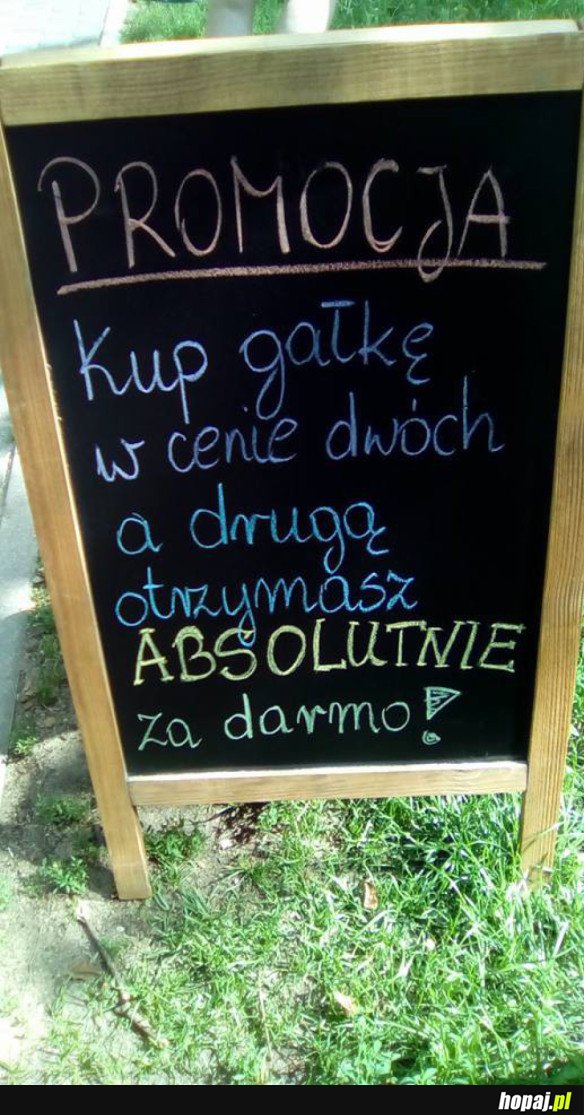 PROMOCJA
Kup gałkę
w cenie dwóch
a drugą
otrzymasz
ABSOLUTNIE
za darmo!
hopaj.pl